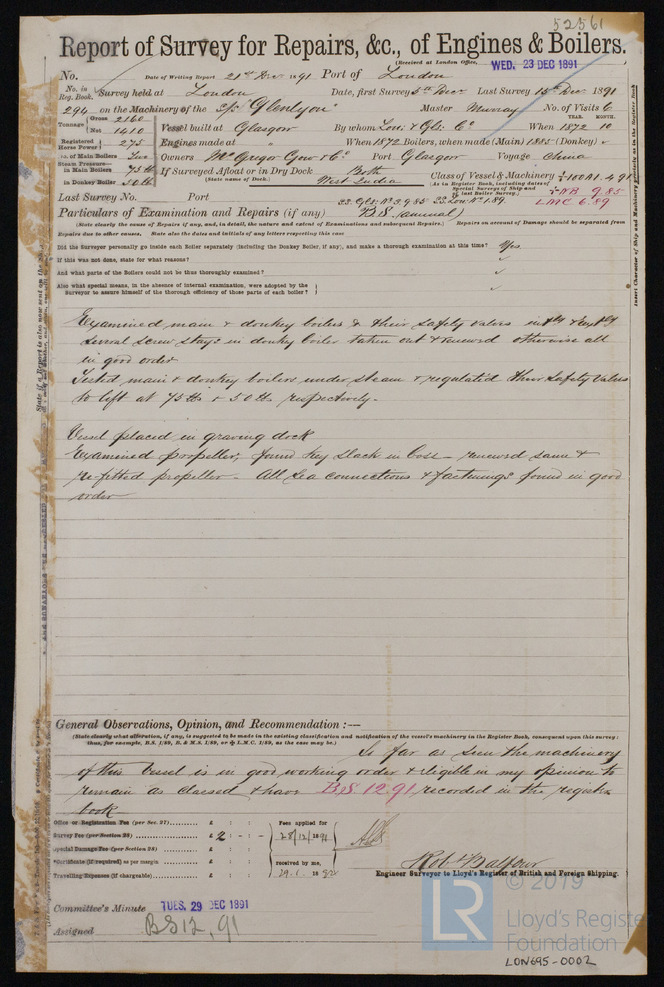 52561
Report of Survey for Repairs, &c., of Engines & Boilers.
(Received at London Office, WED. 23 DEC 1891
No. Date of Writing Report 21st Dec 1891 Port of London
No. in Reg. Book. Survey held at London Date, first Survey 5th Dec Last Survey 15th Dec 1891
294 on the Machinery of the S/S "Glenlyon" Master Murray No. of Visits 6
Tonnage Gross 2160 Net 1410 Vessel built at Glasgow By whom Lon: & Gls: Co When 1872 YEAR. MONTH. 10
Registered Horse Power 275 Engines made at " When 1872 Boilers, when made (Main) 1885 (Donkey)
No. of Main Boilers Two Owners McGregor Gow & Co Port Glasgow Voyage China
Steam Pressure— in Main Boilers 75 lb If Surveyed Afloat or in Dry Dock Both
in Donkey Boiler 50 lb (State name of Dock.) West India
Class of Vessel & Machinery 100A1. 4.91
(As in Register Book, including dates of Special Surveys of Ship and of last Boiler Survey.) NB 9.85
LMC 6.89
Last Survey No. Port
Particulars of Examination and Repairs (if any) BS (annual)
(State clearly the cause of Repairs if any, and, in detail, the nature and extent of Examinations and subsequent Repairs.) Repairs on account of Damage should be separated from
Repairs due to other causes. State also the dates and initials of any letters respecting this case
Did the Surveyor personally go inside each Boiler separately (including the Donkey Boiler, if any), and make a thorough examination at this time? Yes
If this was not done, state for what reasons?
And what parts of the Boilers could not be thus thoroughly examined?
Also what special means, in the absence of internal examination, were adopted by the
Surveyor to assure himself of the thorough efficiency of those parts of each boiler?
Examined main & donkey boilers & their safety valves intly & extly
Several screw stays in donkey boiler taken out & renewed otherwise all
in good order
Tested main & donkey boilers under steam & regulated their safety valves
to lift at 75 lbs & 50 lbs respectively.
Vessel placed in graving dock
Examined propeller, found key slack in boss — renewed same &
re-fitted propeller — All sea connections & fastenings found in good
order
General Observations, Opinion, and Recommendation :—
(State clearly what alteration, if any, is suggested to be made in the existing classification and notification of the vessel's machinery in the Register Book, consequent upon this survey:
thus, for example, B.S. 1/89, B. & M.S. 1/89, or L.M.C. 1/89, as the case may be.)
So far as seen the machinery
of this vessel is in good working order & eligible in my opinion to
remain as classed & have BS 12.91 recorded in the register
book
Office or Registration Fee (per Sec. 27) £ : : Fees applied for
Survey Fee (per Section 28) £ 2 : - : - 28/12/1891
Special Damage Fee (per Section 28) £ : :
Certificate (if required) as per margin £ : : received by me,
Travelling Expenses (if chargeable) £ : : 29.1.1892
Robt Balfour
Engineer Surveyor to Lloyd's Register of British and Foreign Shipping.
Committee's Minute TUES. 29 DEC 1891
Assigned BS 12,91
LR
© 2019
Lloyd's Register
Foundation
LON695-0002